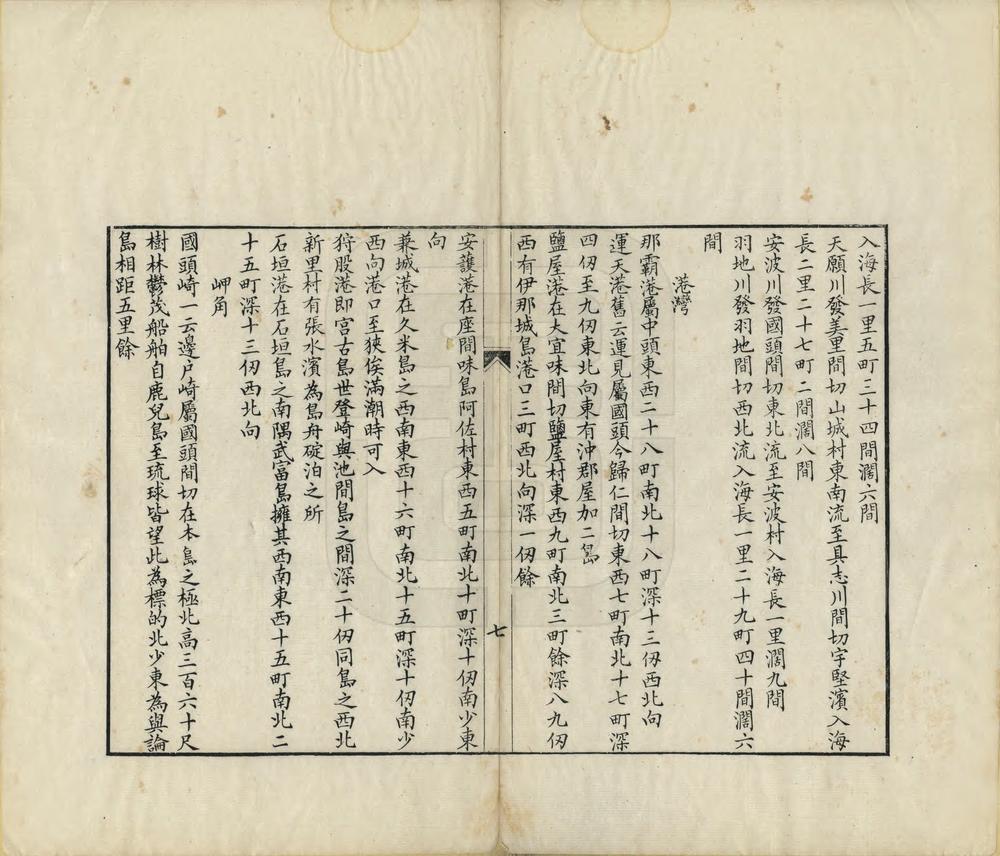 入海長一里五町三十四間濶六間
天願川發美里間切山城村東南流至具志川間切宇堅濱入海
長二里二十七町二間濶八間
安波川發國頭間切東北流至安波村入海長一里濶九間
羽地川發羽地間切西北流入海長一里二十九町四十間濶六
間
港灣
那霸港屬中頭東西二十八町南北十八町深十三仞西北向
運天港舊云運見屬國頭今歸仁間切東西七町南北十七町深
四仞至九仞東北向東有沖郡屋加二島
鹽屋港在大宜味間切鹽屋村東西九町南北三町餘深八九仞
西有伊那城島港口三町西北向深一仞餘
七
安護港在座間味島阿佐村東西五町南北十町深十仞南少東
向
兼城港在久米島之西南東西十六町南北十五町深十仞南少
西向港口至狹俟滿潮時可入
狩股港即宮古島世登崎與池間島之間深二十仞同島之西北
新里村有張水濱為島舟碇泊之所
石垣港在石垣島之南隅武富島擁其西南東西十五町南北二
十五町深十三仞西北向
岬角
國頭崎一云邊户崎屬國頭間切在本島之極北高三百六十尺
樹林鬱茂船舶自鹿兒島至琉球皆望此為標的北少東為與論
島相距五里餘